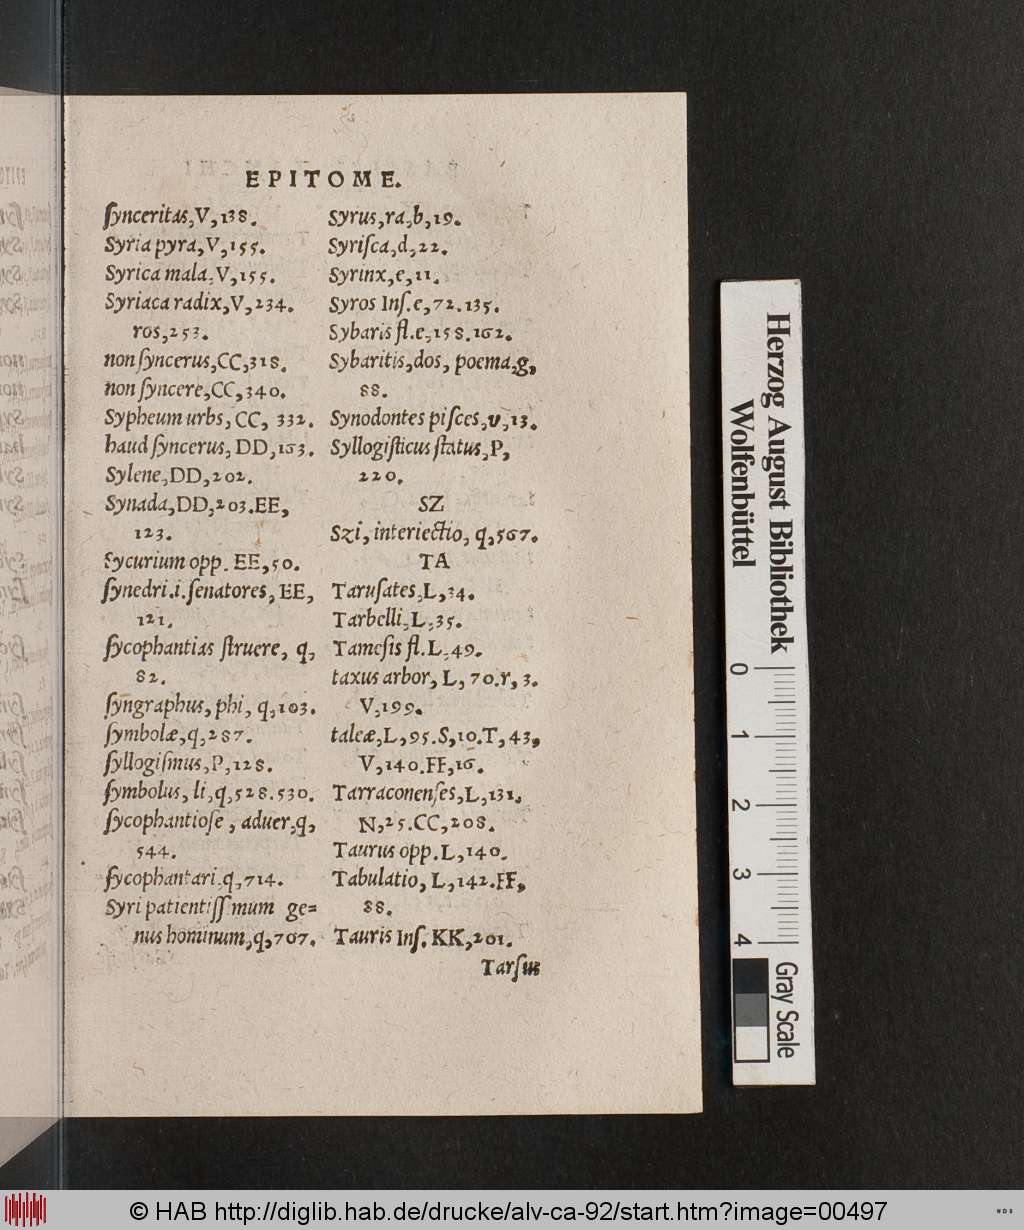 EPITOME.
ſynceritas,V,138.
Syria pyra,V,155.
Syrica mala,V,155.
Syriaca radix,V,234.
ros,253.
non ſyncerus,CC,318.
non ſyncere,CC,340.
Sypheum urbs, CC, 332.
haud ſyncerus, DD,163.
Sylene,DD,202.
Synada,DD,203.EE,
123.
Sycurium opp. EE,50.
ſynedri.i.ſenatores, EE,
121.
ſycophantias ſtruere, q,
82.
ſyngraphus, phi, q,103.
ſymbolæ,q,287.
ſyllogiſmus,P,128.
ſymbolus, li,q,528.530.
ſycophantioſe, aduer,q,
544.
ſycophantari,q,714.
Syri patientiſſimum ge=
nus hominum,q,707.
Syrus,ra,b,19.
Syriſca,d,22.
Syrinx,e,11.
Syros Inſ.e,72.135.
Sybaris fl.e,158.162.
Sybaritis,dos, poema,g,
88.
Synodontes piſces,v,13.
Syllogiſticus ſtatus,P,
220.
SZ
Szi, interiectio, q,567.
TA
Taruſates,L,34.
Tarbelli,L,35.
Tameſis fl.L,49.
taxus arbor, L, 70.r, 3.
V,199.
taleæ,L,95.S,10.T,43,
V,140.FF,16.
Tarraconenſes,L,131.
N,25.CC,208.
Taurus opp.L,140.
Tabulatio, L,142.FF,
88.
Tauris Inſ. KK,201.
Tarſus
Herzog August Bibliothek
Wolfenbüttel
0 1 2 3 4
Gray Scale
© HAB http://diglib.hab.de/drucke/alv-ca-92/start.htm?image=00497